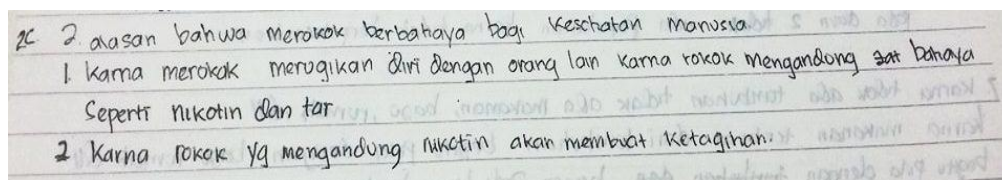 2C 2 alasan bahwa merokok berbahaya bagi kesehatan manusia.
1. Karna merokok merugikan diri dengan orang lain karna rokok mengandong zat bahaya
Seperti nikotin dan tar
2 Karna rokok yg mengandung nikotin akan membuat ketagihan.